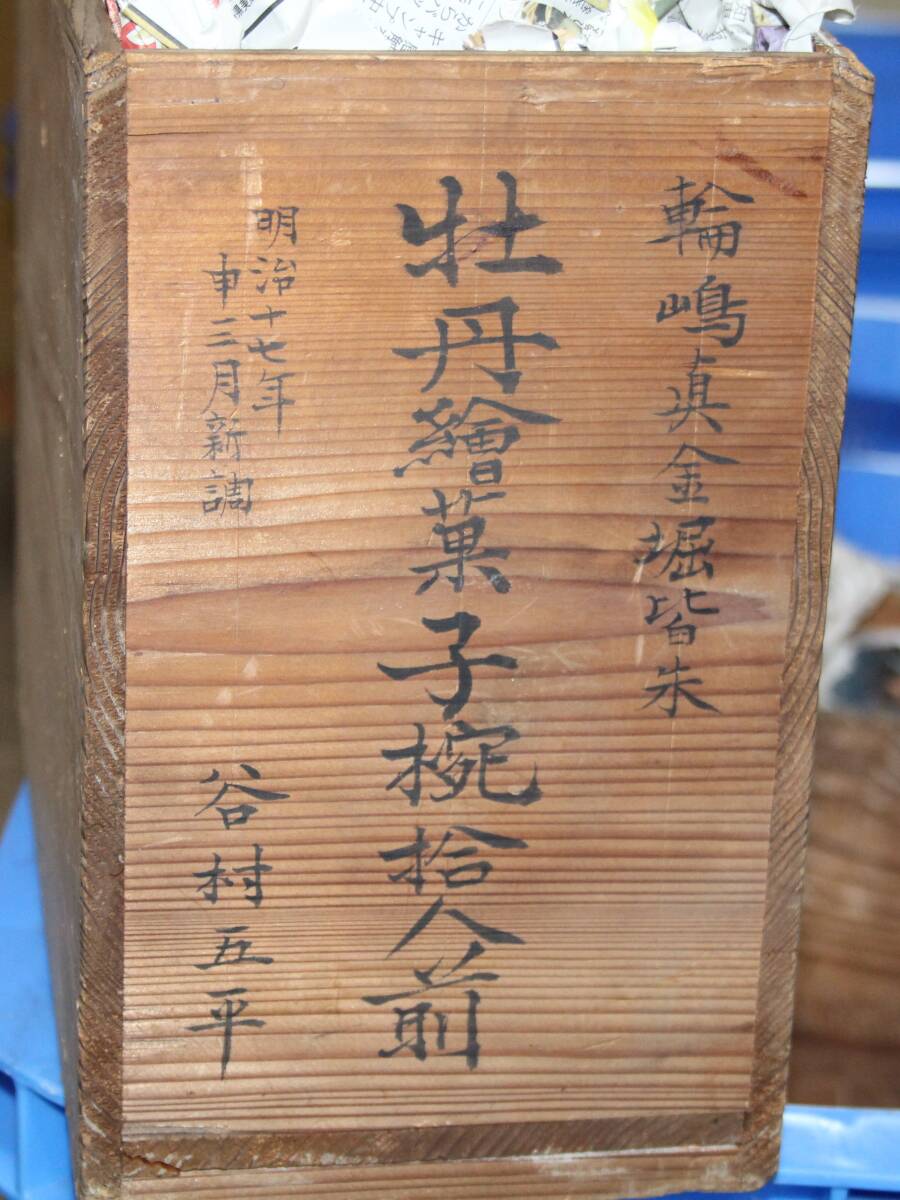 輪嶋真金堀皆朱
牡丹繪菓子椀拾人前
明治十七年
申三月新調
谷村五平